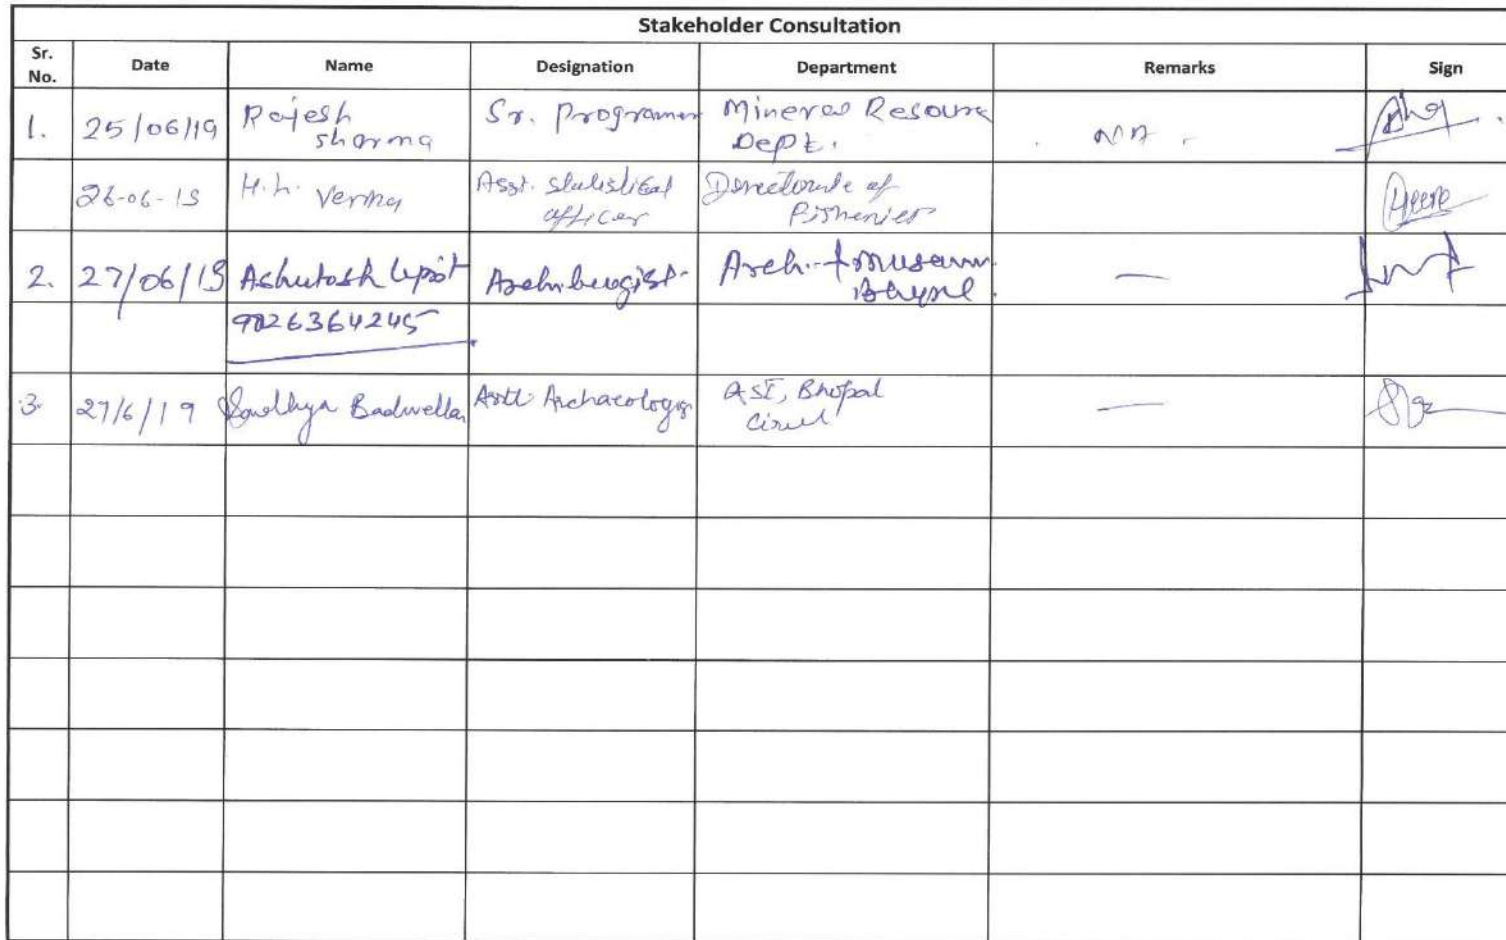 Stakeholder Consultation
Sr. No. Date Name Designation Department Remarks Sign
1. 25/06/19 Rajesh Sharma Sr. Programer Mineral Resource Dept. NA
26-06-19 H.L. Verma Asst. Statistical officer Directorate of Fisheries
2. 27/06/19 Ashutosh Archeologist Arch. + museum —
9826364245
3. 27/6/19 Sandhya Asstt. Archaeologist ASI, Bhopal Circle —